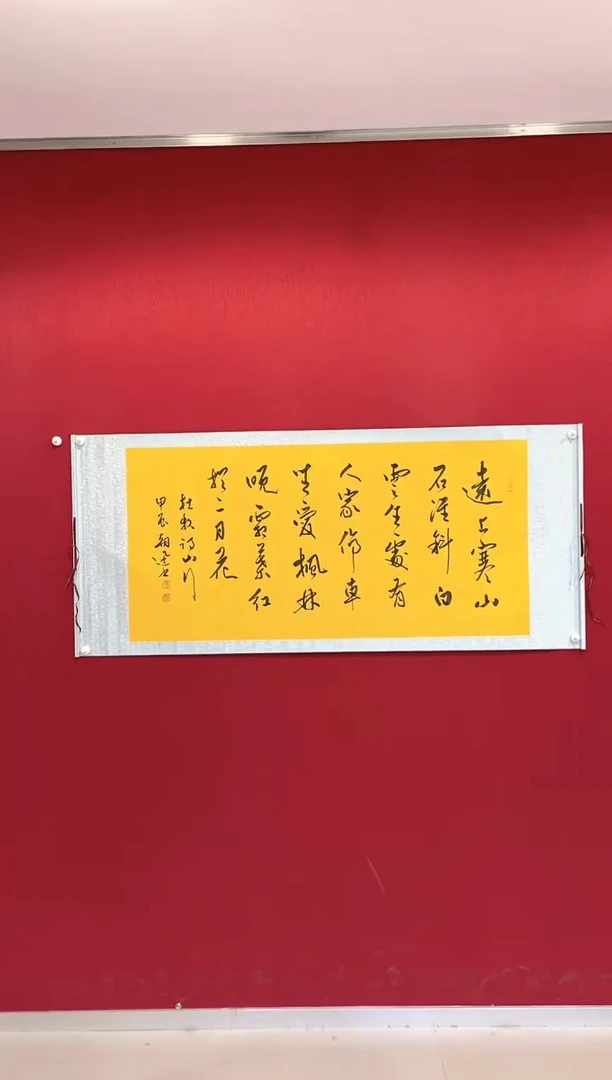 遠上寒山
石徑斜白
雲生處有
人家停車
坐愛楓林
晚霜葉紅
於二月花
杜牧詩山行
甲辰